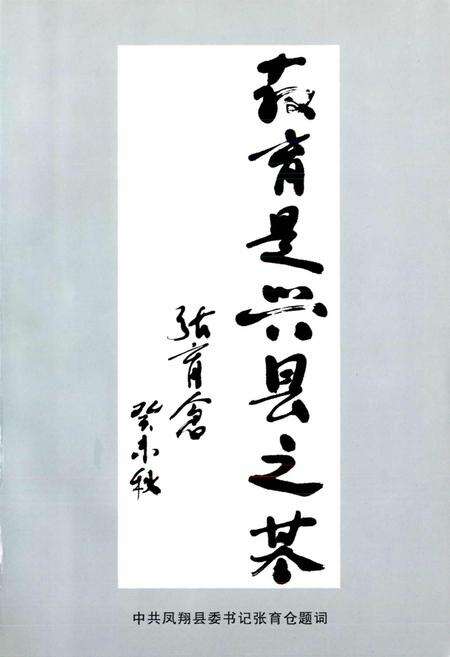 教育是兴县之基
张育仓
癸未秋
中共凤翔县委书记张育仓题词